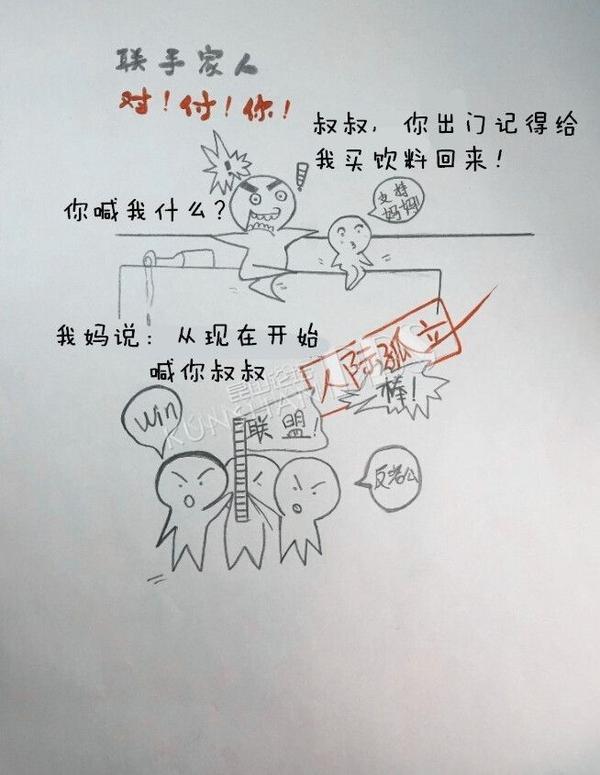 联手家人
对！付！你！
叔叔，你出门记得给
我买饮料回来！
你喊我什么？
支持
妈妈！
我妈说：从现在开始
喊你叔叔
人际孤立
棒！
win
联盟！
反老公
昆山论坛
KUNSHAN BBS